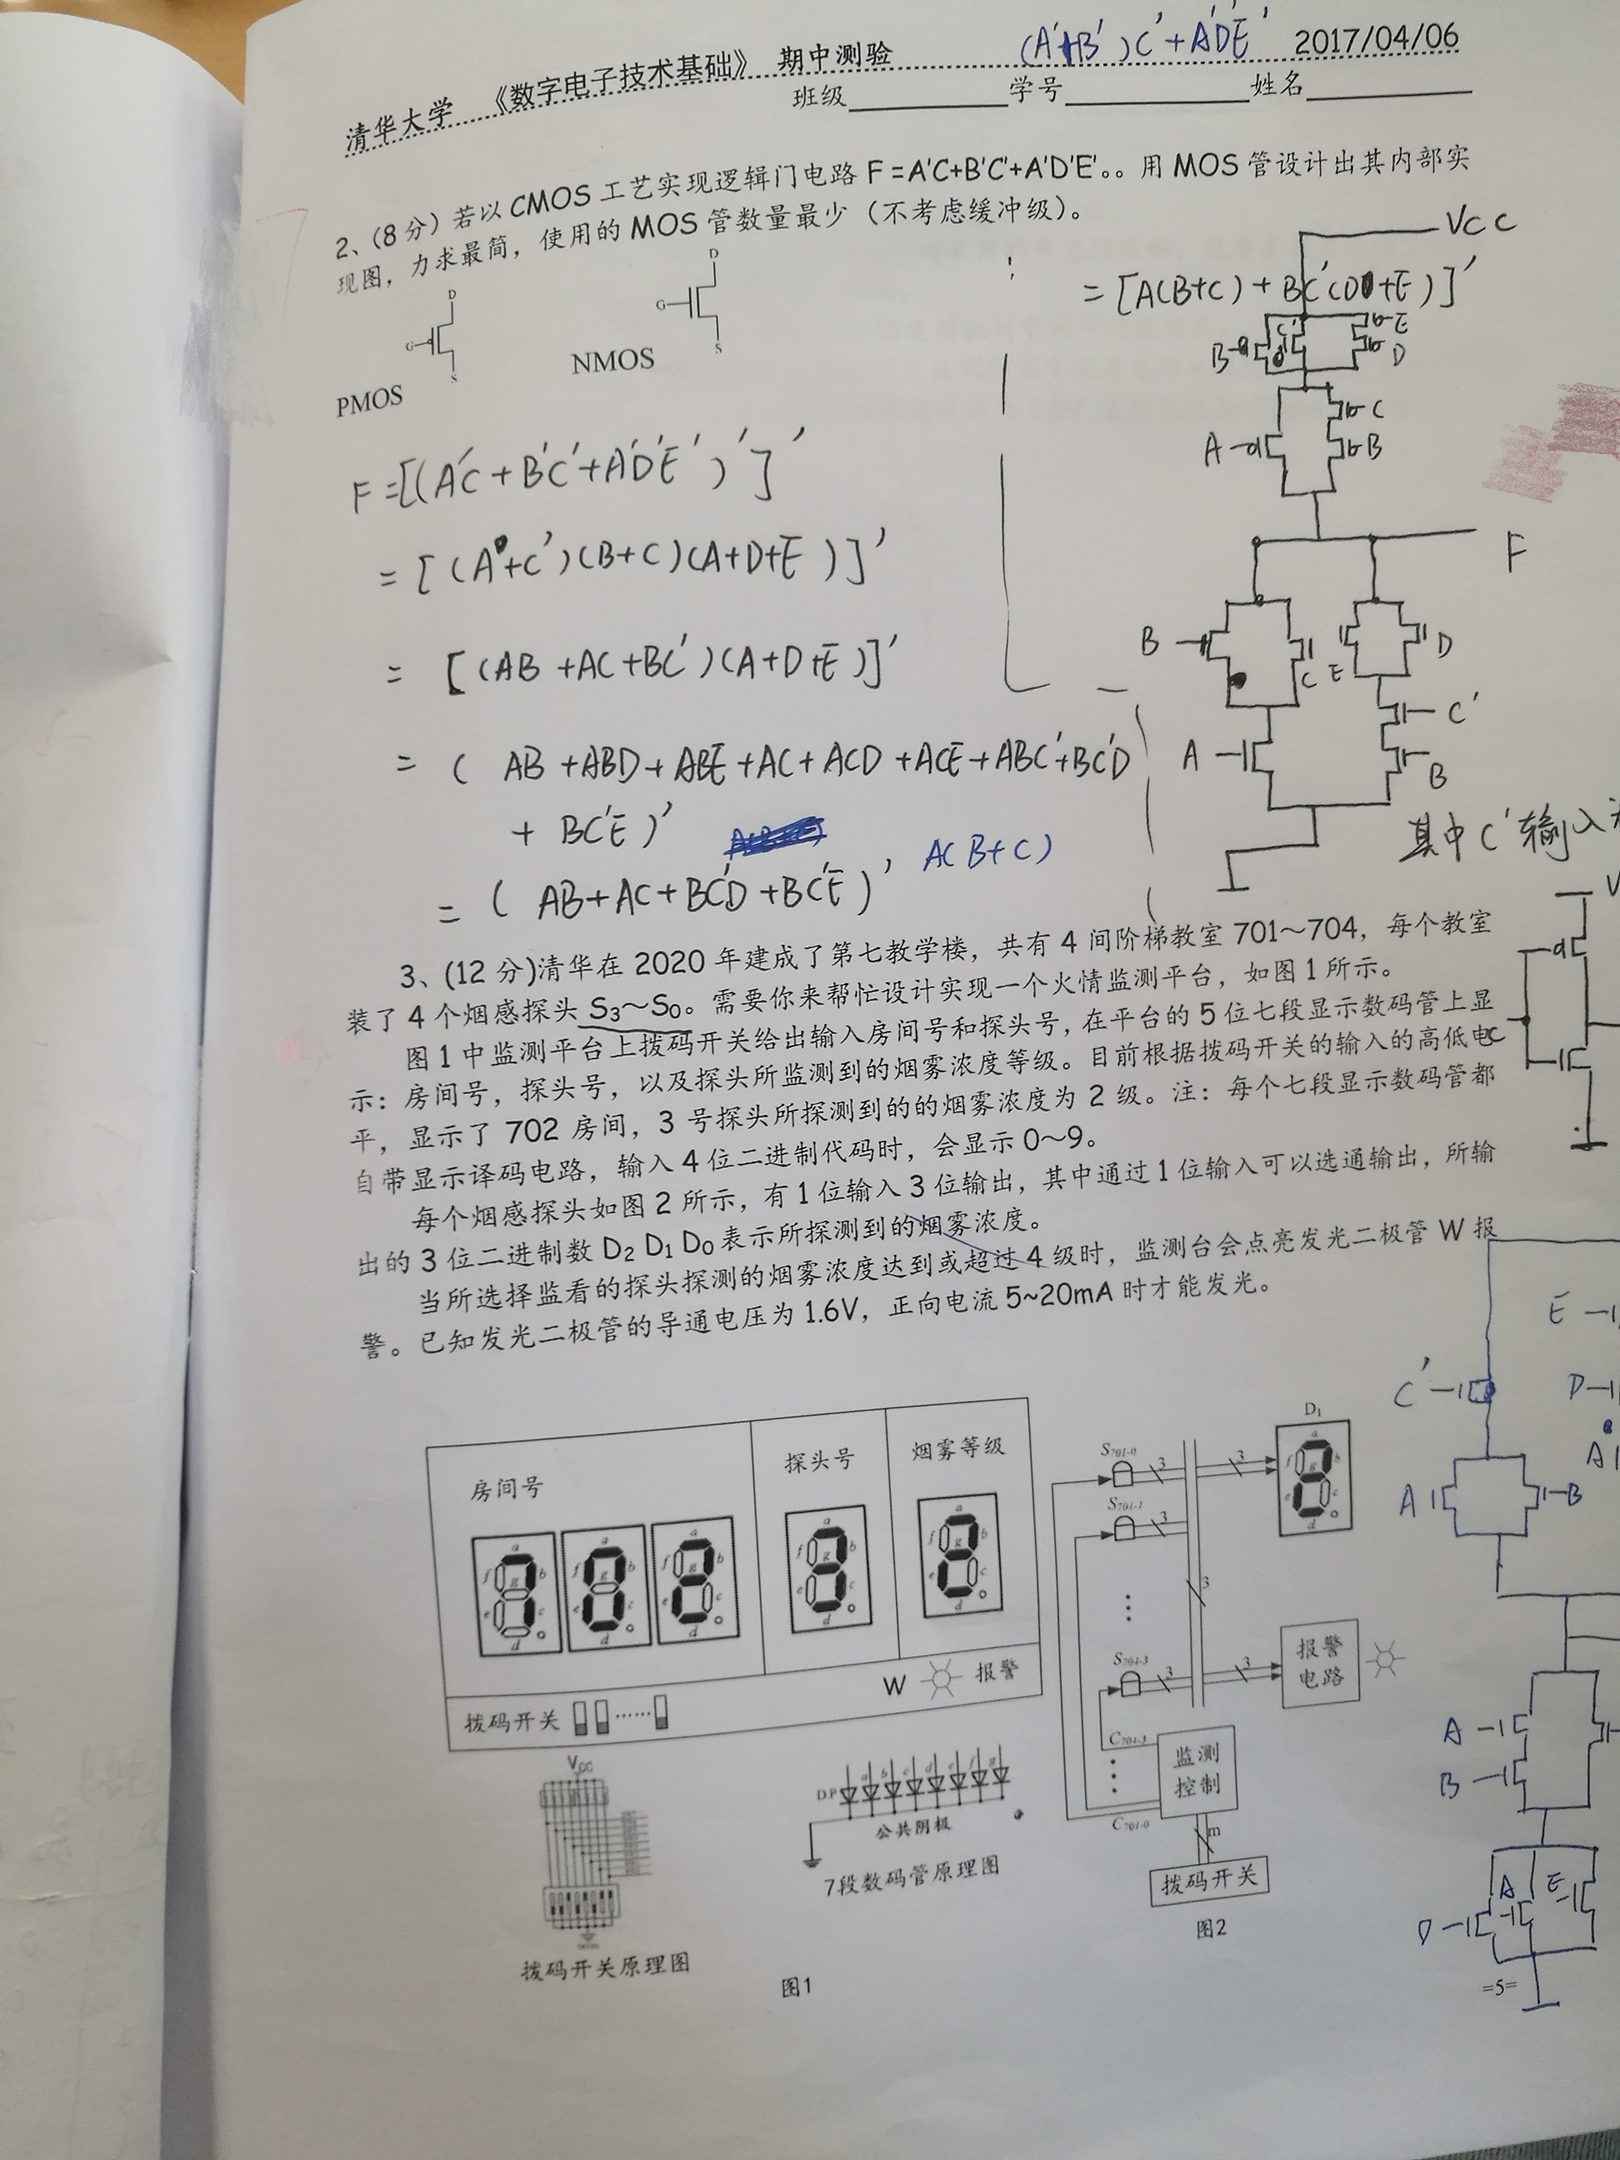 (A'+B')C'+A'D'E'
清华大学 《数字电子技术基础》 期中测验 2017/04/06
班级 学号 姓名
2、(8分)若以CMOS工艺实现逻辑门电路F=A'C+B'C'+A'D'E'。。用MOS管设计出其内部实
现图，力求最简，使用的MOS管数量最少（不考虑缓冲级）。
VCC
=[A(B+C)+BC'(D+E)]'
D
G
S
PMOS
D
G
S
NMOS
B
C'
E
D
A
C
B
F
F=[(A'C+B'C'+A'D'E')']'
=[(A+C')(B+C)(A+D+E)]'
=[(AB+AC+BC')(A+D+E)]'
=(AB+ABD+ABE+AC+ACD+ACE+ABC'+BC'D
+BC'E)'
=(AB+AC+BC'D+BC'E)'
A(B+C)
B
C
E
D
C'
A
B
其中C'输入
3、(12分)清华在2020年建成了第七教学楼，共有4间阶梯教室701～704，每个教室
装了4个烟感探头S3～S0。需要你来帮忙设计实现一个火情监测平台，如图1所示。
图1中监测平台上拨码开关给出输入房间号和探头号，在平台的5位七段显示数码管上显
示：房间号，探头号，以及探头所监测到的烟雾浓度等级。目前根据拨码开关的输入的高低电
平，显示了702房间，3号探头所探测到的的烟雾浓度为2级。注：每个七段显示数码管都
自带显示译码电路，输入4位二进制代码时，会显示0～9。
每个烟感探头如图2所示，有1位输入3位输出，其中通过1位输入可以选通输出，所输
出的3位二进制数D2 D1 D0表示所探测到的烟雾浓度。
当所选择监看的探头探测的烟雾浓度达到或超过4级时，监测台会点亮发光二极管W报
警。已知发光二极管的导通电压为1.6V，正向电流5~20mA时才能发光。
C
房间号
探头号
烟雾等级
W 报警
拨码开关 ……
VCC
拨码开关原理图
D.P
公共阴极
7段数码管原理图
图1
S701-0
3
3
D1
S701-1
3
3
S704-3
3
3
报警
电路
C704-3
监测
控制
C701-0
m
拨码开关
图2
E
C'
D
A
B
A
B
D
A
E
=5=